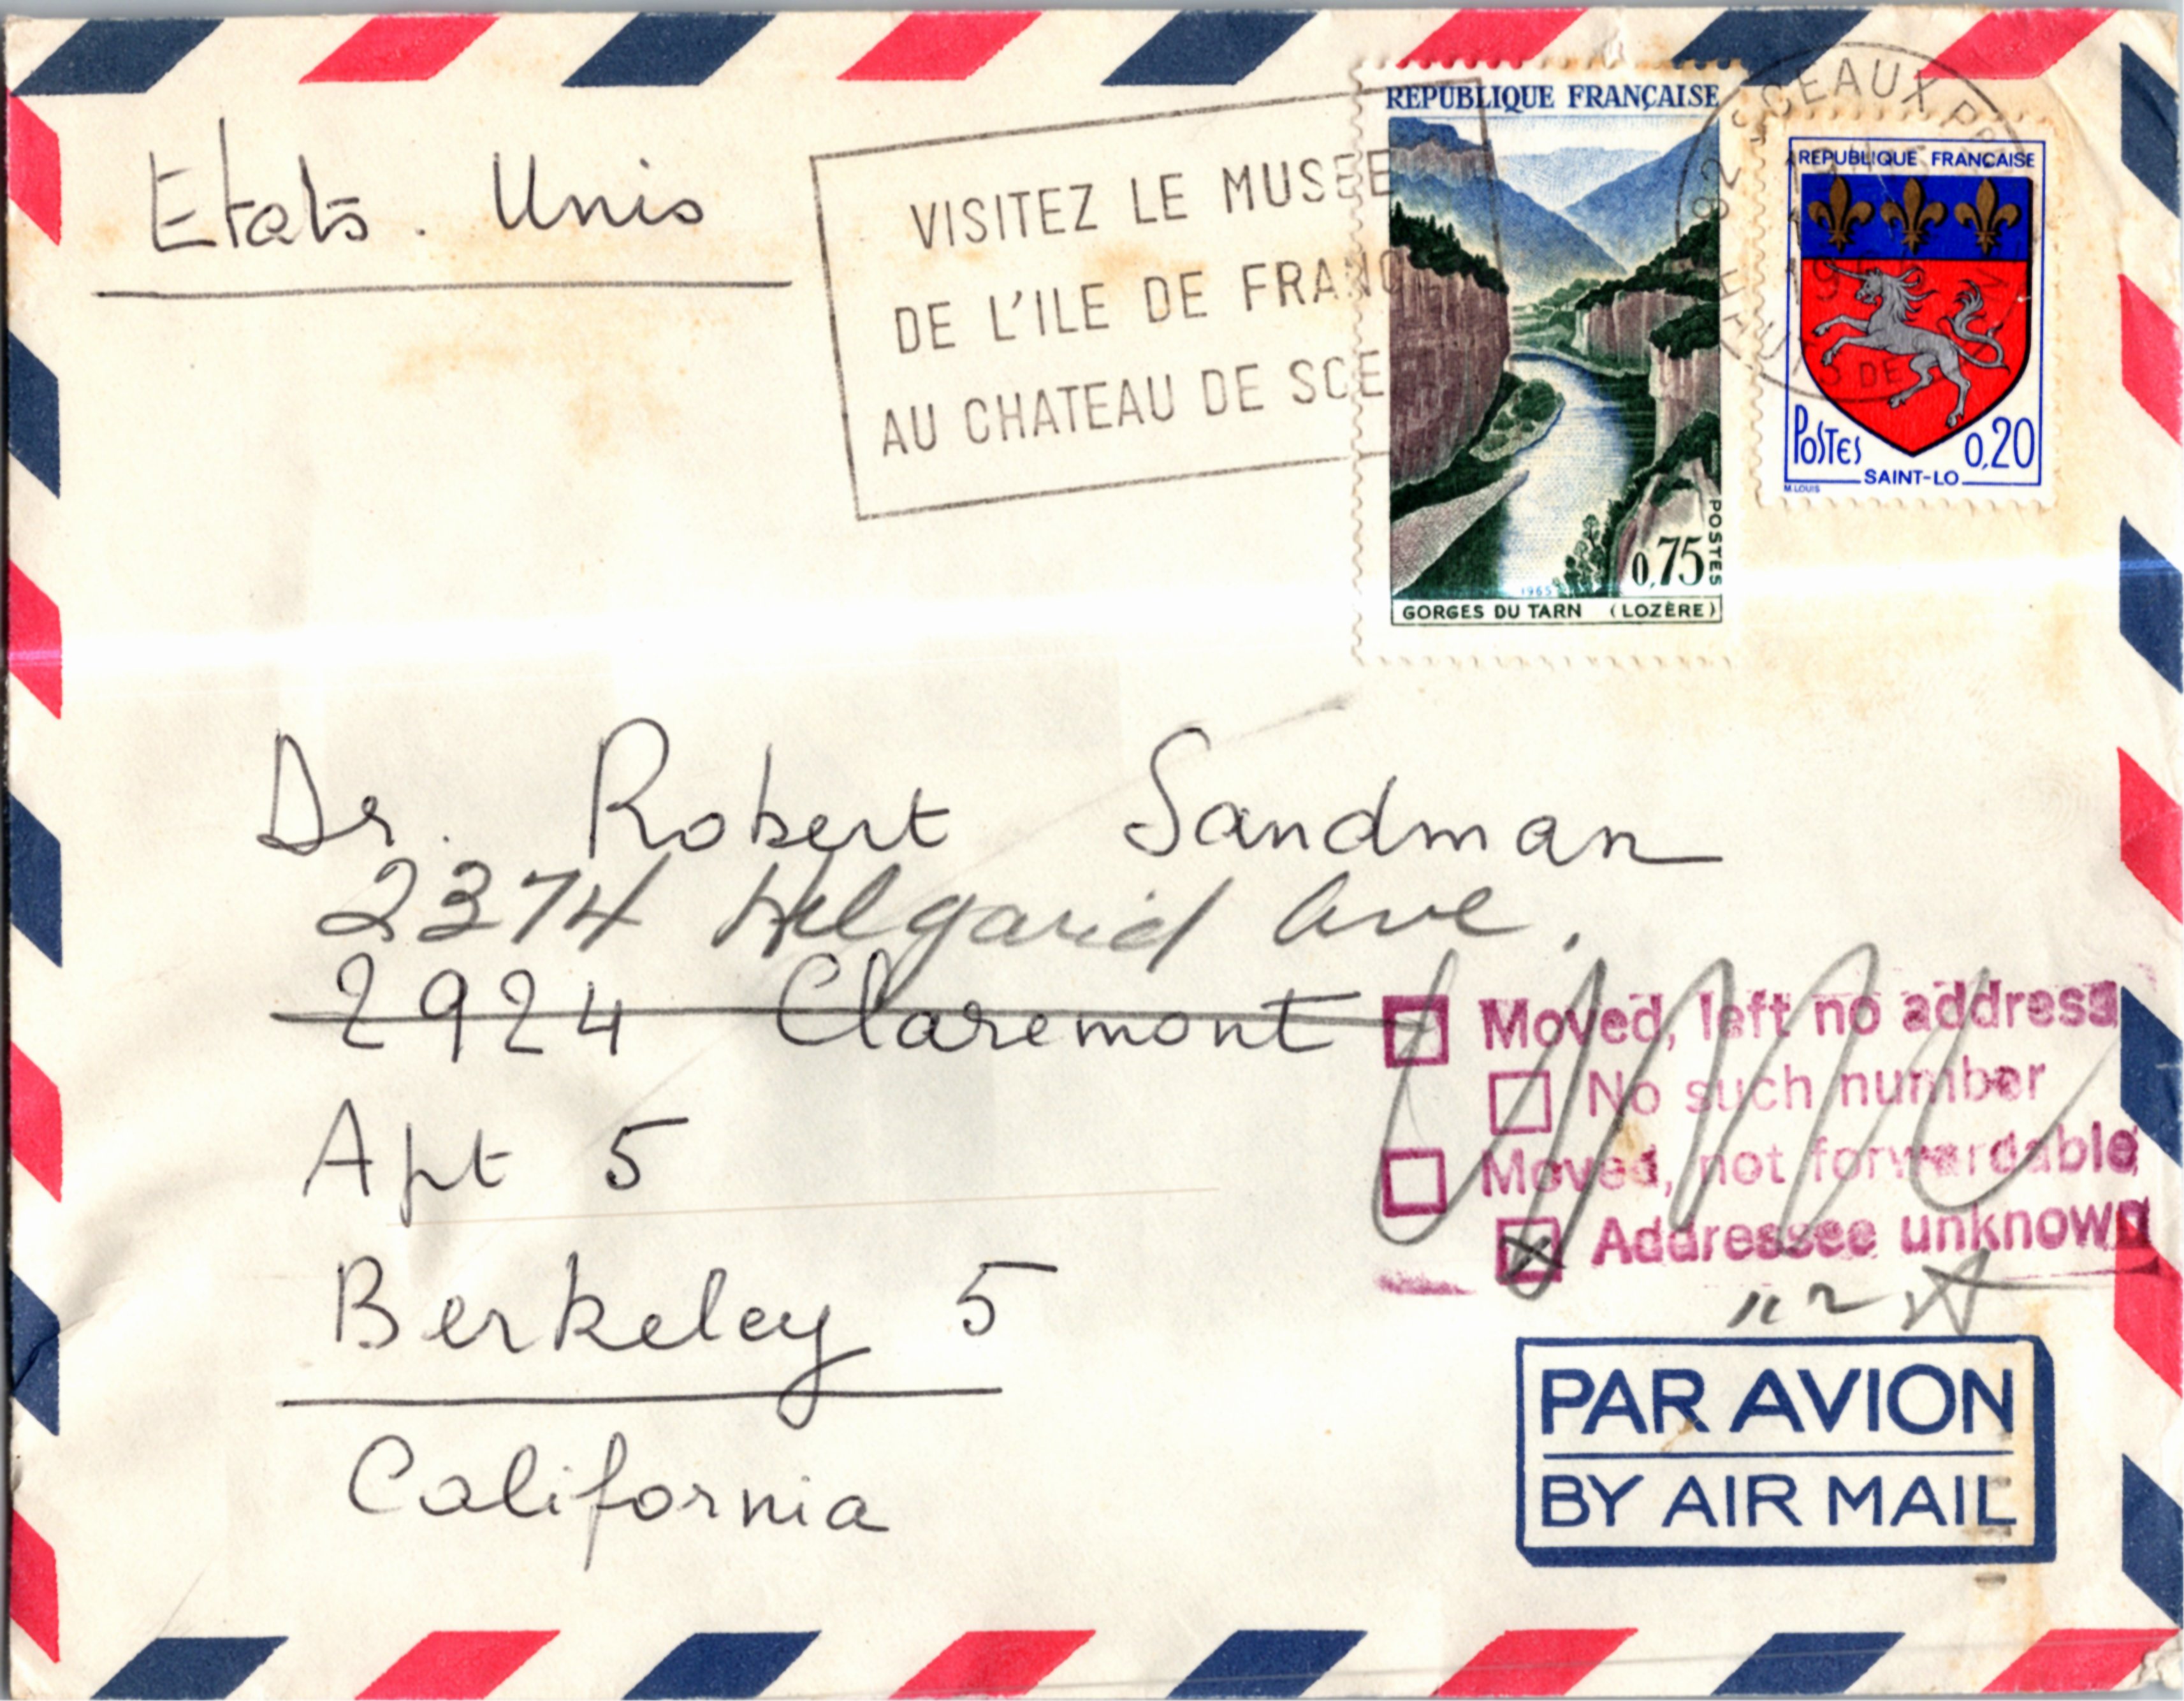 Etats. Unis
VISITEZ LE MUSEE
DE L'ILE DE FRANC
AU CHATEAU DE SCE
REPUBLIQUE FRANÇAISE
0,75
POSTES
1965
GORGES DU TARN (LOZÈRE)
92 SCEAUX PPAL
HAUTS DE
REPUBLIQUE FRANCAISE
POSTES 0,20
SAINT-LO
M.LOUIS
Dr. Robert Sandman
2374 Hilgarid Ave.
2924 Claremont
Apt 5
Berkeley 5
California
Moved, left no address
No such number
Moved, not forwardable
Addressee unknown
PAR AVION
BY AIR MAIL